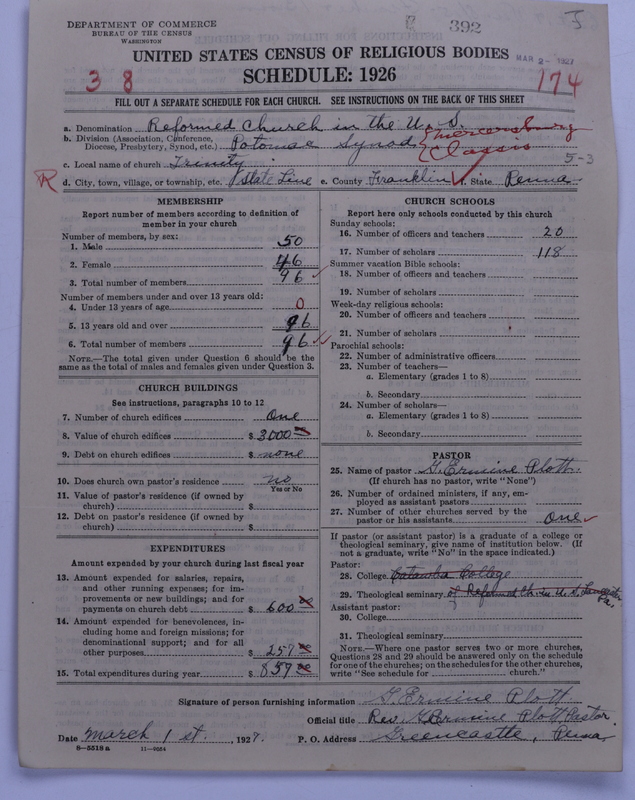 DEPARTMENT OF COMMERCE
BUREAU OF THE CENSUS
WASHINGTON
392
J
UNITED STATES CENSUS OF RELIGIOUS BODIES
MAR 2 - 1927
SCHEDULE: 1926
3 8
174
FILL OUT A SEPARATE SCHEDULE FOR EACH CHURCH. SEE INSTRUCTIONS ON THE BACK OF THIS SHEET
a. Denomination Reformed Church in the U.S.
b. Division (Association, Conference, Diocese, Presbytery, Synod, etc.) Potomac Synod { Mercersburg Classis
c. Local name of church Trinity
5-3
R d. City, town, village, or township, etc. State Line e. County Franklin f. State Penna.
MEMBERSHIP
Report number of members according to definition of member in your church
Number of members, by sex:
1. Male 50
2. Female 46
3. Total number of members 96
Number of members under and over 13 years old:
4. Under 13 years of age 0
5. 13 years old and over 96
6. Total number of members 96
NOTE.—The total given under Question 6 should be the same as the total of males and females given under Question 3.
CHURCH BUILDINGS
See instructions, paragraphs 10 to 12
7. Number of church edifices One
8. Value of church edifices $ 3000
9. Debt on church edifices $ none
10. Does church own pastor's residence no
Yes or No
11. Value of pastor's residence (if owned by church) $
12. Debt on pastor's residence (if owned by church) $
EXPENDITURES
Amount expended by your church during last fiscal year
13. Amount expended for salaries, repairs, and other running expenses; for improvements or new buildings; and for payments on church debt $ 600
14. Amount expended for benevolences, including home and foreign missions; for denominational support; and for all other purposes $ 257
15. Total expenditures during year $ 857
CHURCH SCHOOLS
Report here only schools conducted by this church
Sunday schools:
16. Number of officers and teachers 20
17. Number of scholars 118
Summer vacation Bible schools:
18. Number of officers and teachers
19. Number of scholars
Week-day religious schools:
20. Number of officers and teachers
21. Number of scholars
Parochial schools:
22. Number of administrative officers
23. Number of teachers—
a. Elementary (grades 1 to 8)
b. Secondary
24. Number of scholars—
a. Elementary (grades 1 to 8)
b. Secondary
PASTOR
25. Name of pastor G. Ermine Plott.
(If church has no pastor, write "None")
26. Number of ordained ministers, if any, employed as assistant pastors
27. Number of other churches served by the pastor or his assistants One
If pastor (or assistant pastor) is a graduate of a college or theological seminary, give name of institution below. (If not a graduate, write "No" in the space indicated.)
Pastor:
28. College Catawba College
29. Theological seminary of Reformed Ch. in U.S. Lancaster Pa.
Assistant pastor:
30. College
31. Theological seminary
NOTE.—Where one pastor serves two or more churches, Questions 28 and 29 should be answered only on the schedule for one of the churches; on the schedules for the other churches, write "See schedule for church."
Signature of person furnishing information G. Ermine Plott
Official title Rev. G. Ermine Plott Pastor.
Date March 1 st., 1927. P. O. Address Greencastle, Penna.
8—5518 a 11—9554